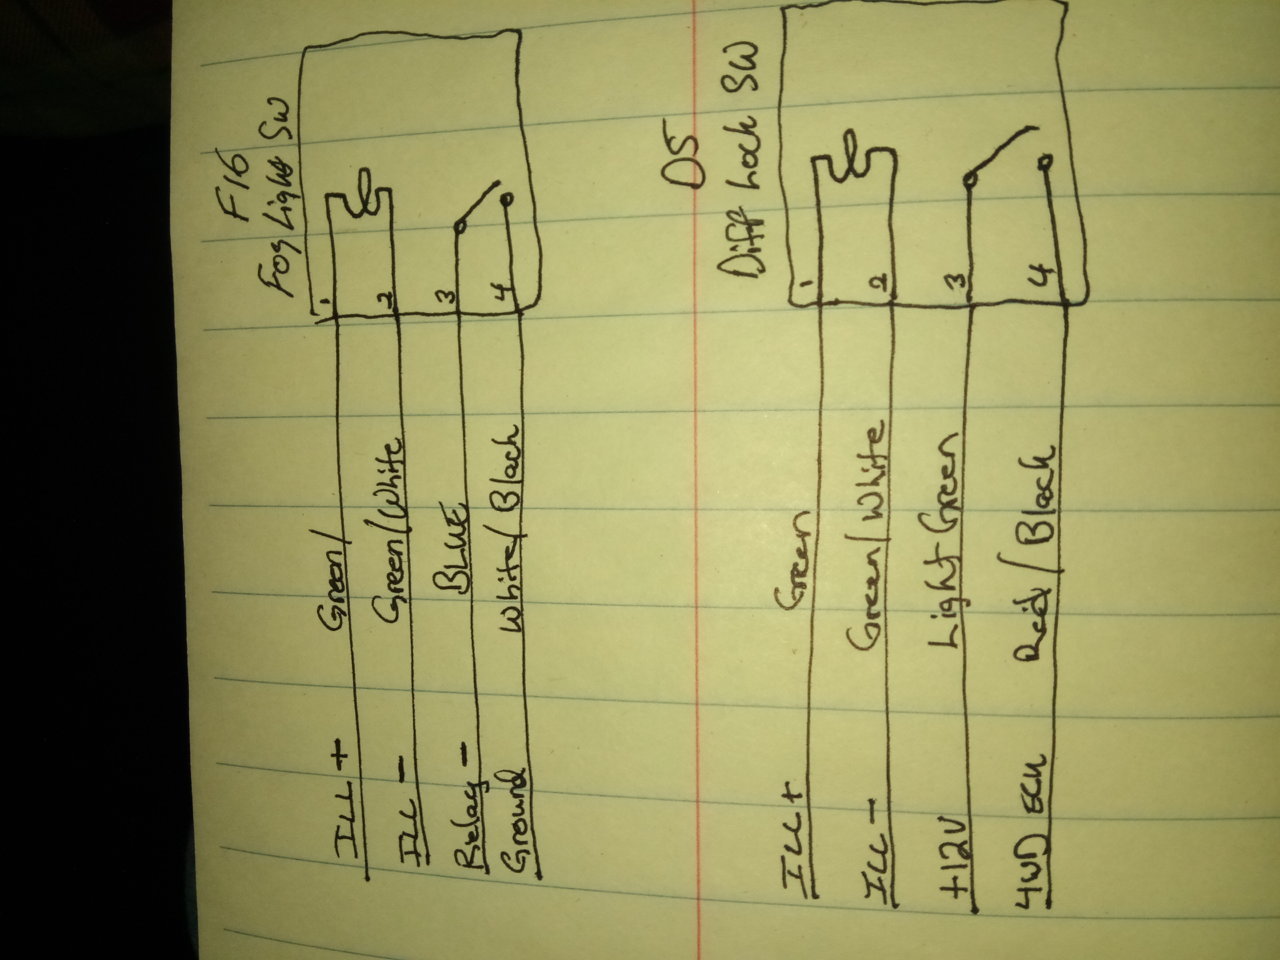 F16
Fog Light SW
1
2
3
4
Green/
Green/White
BLUE
White/Black
ILL +
ILL -
Relay -
Ground
D5
Diff Lock SW
1
2
3
4
Green
Green/White
Light Green
Red/Black
ILL +
ILL -
+12V
4WD ECU